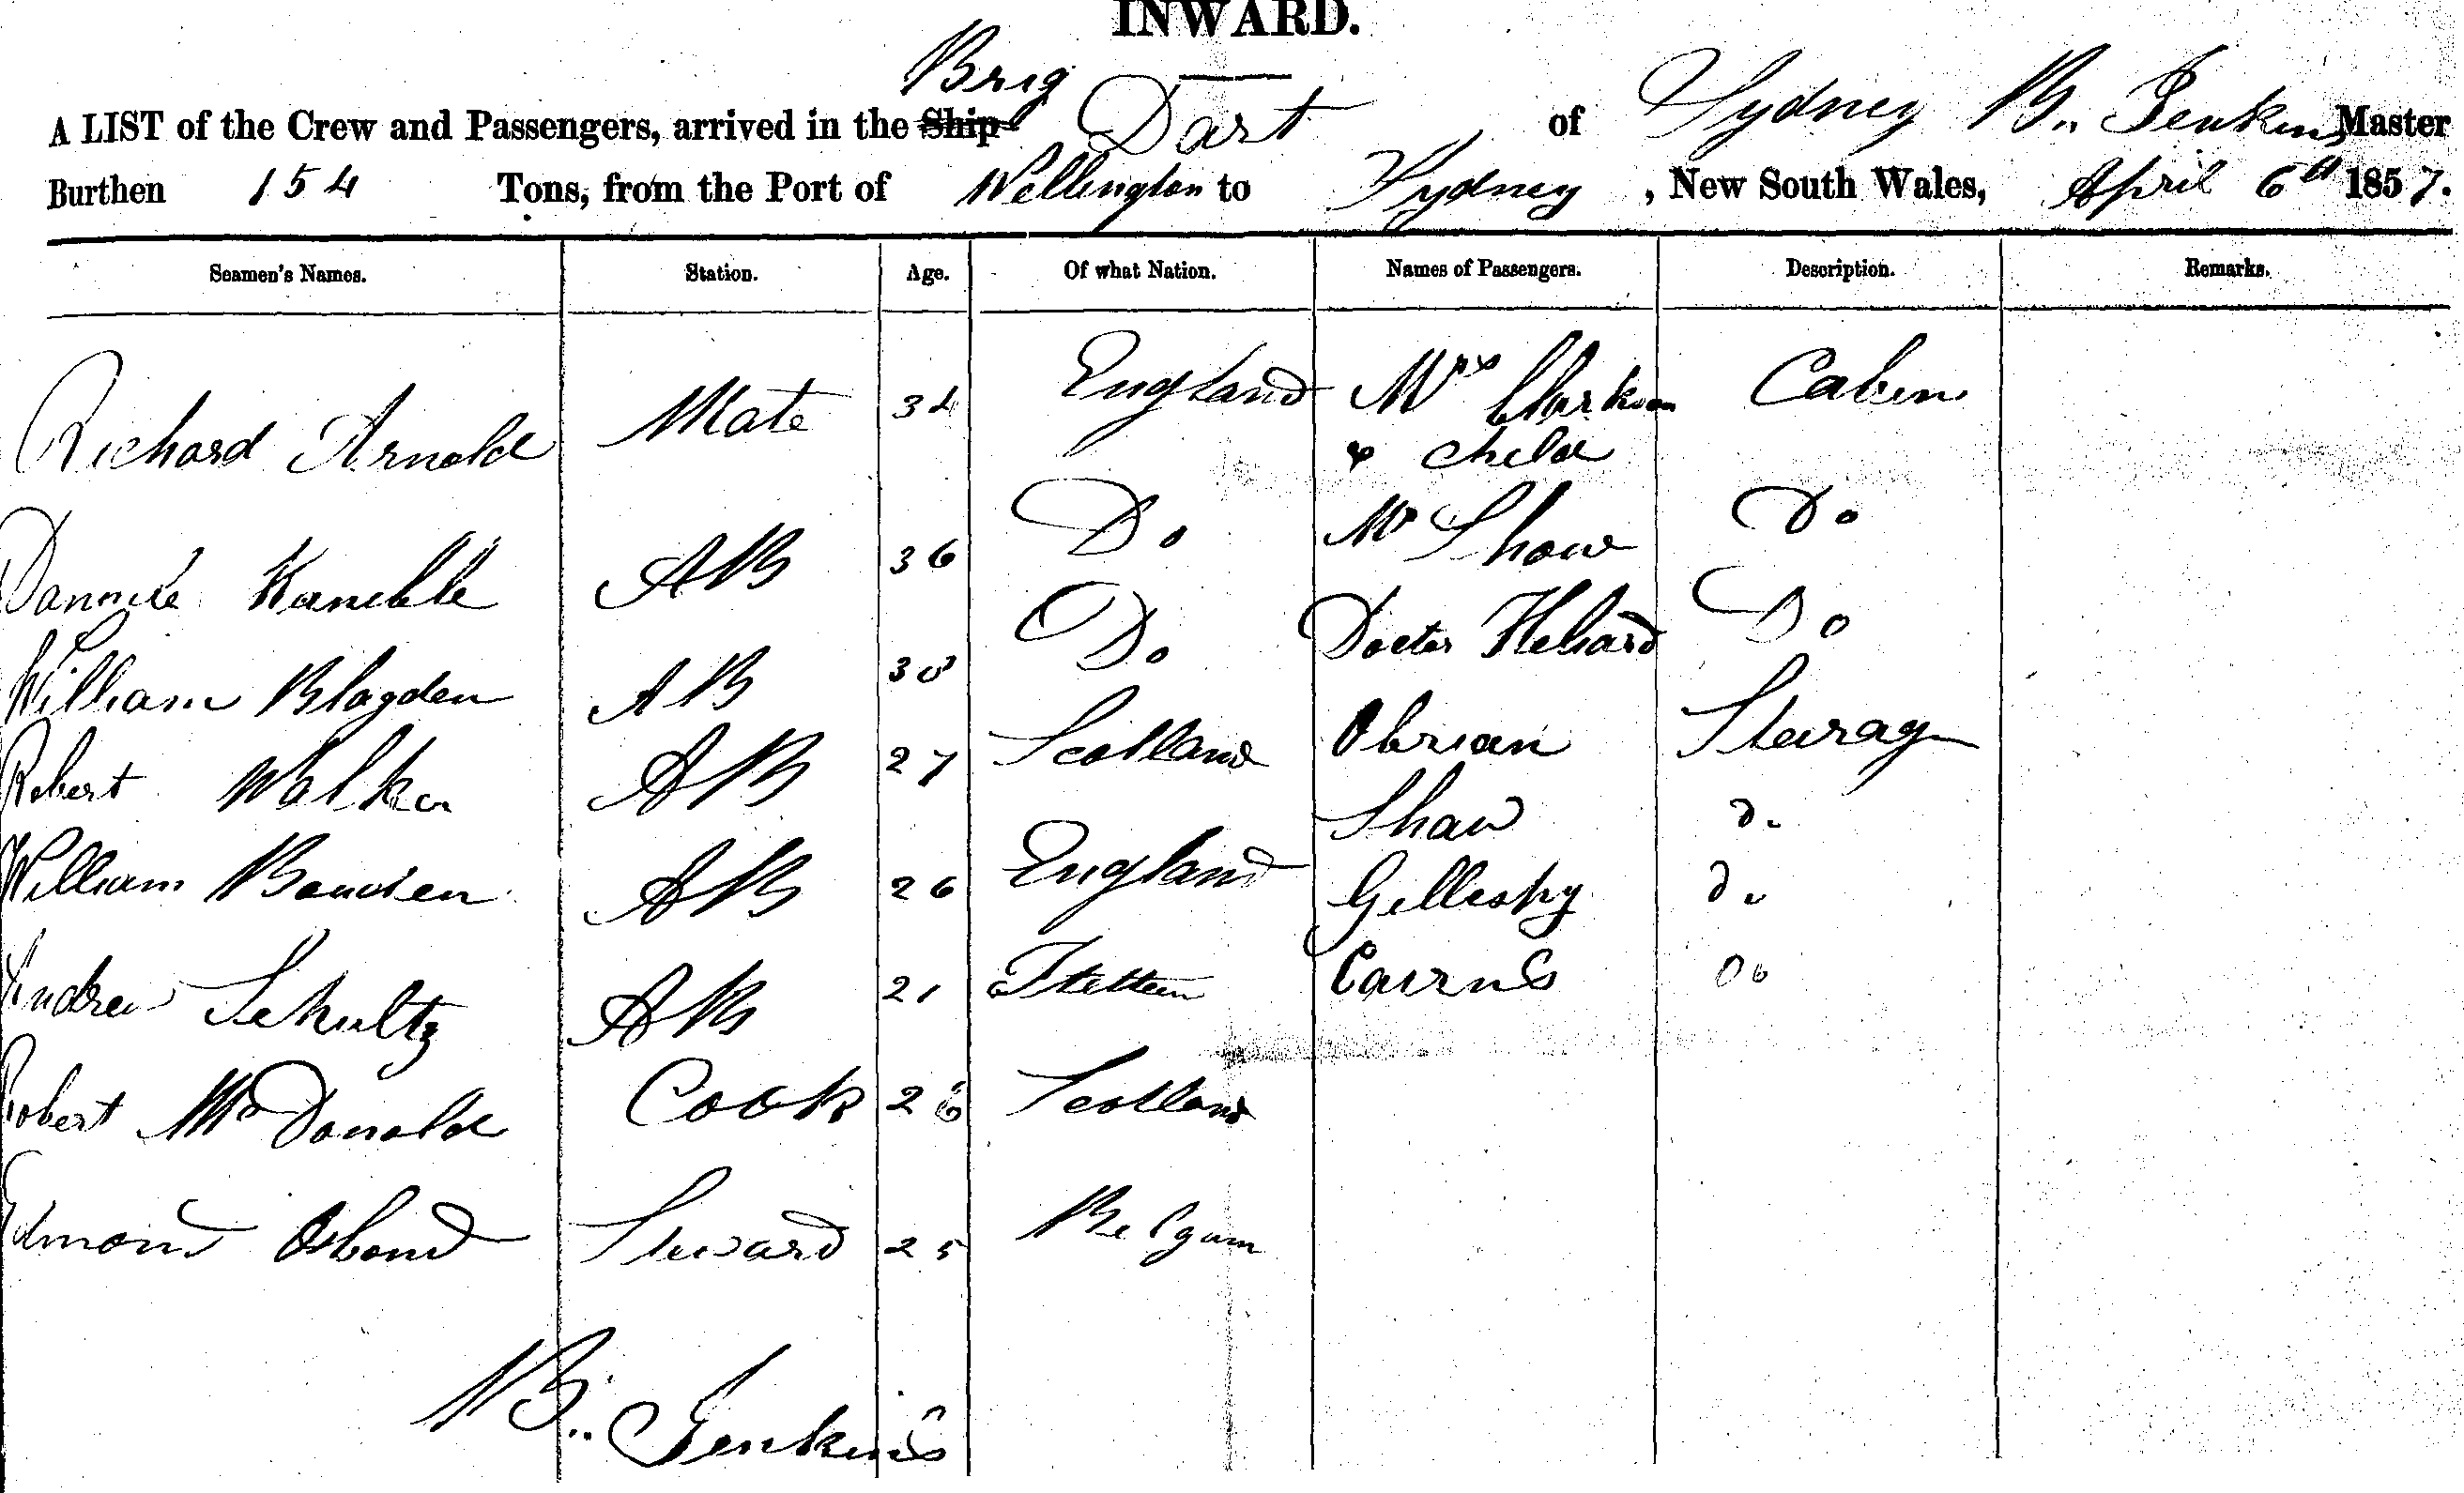 INWARD.
Brig
A LIST of the Crew and Passengers, arrived in the Ship Dart of Sydney B. Jenkins Master
Burthen 154 Tons, from the Port of Wellington to Sydney, New South Wales, April 6th 1857.
Seamen's Names. Station. Age. Of what Nation. Names of Passengers. Description. Remarks.
Richard Arnold Mate 34 England Mrs Clarkson Cabin
& Child
AB 36 Do Mr Show Do
William Blagden AB 30 Do Doctor Do
Robert Walker AB 27 Scotland Obrian
Shaw do
William AB 26 England Gillesby do
Andrew Schultz AB 21 Stettein Cairns Do
Robert McDonald Cook 26 Scotland
Edmond Osbond Steward 25 Belgum
B. Jenkins